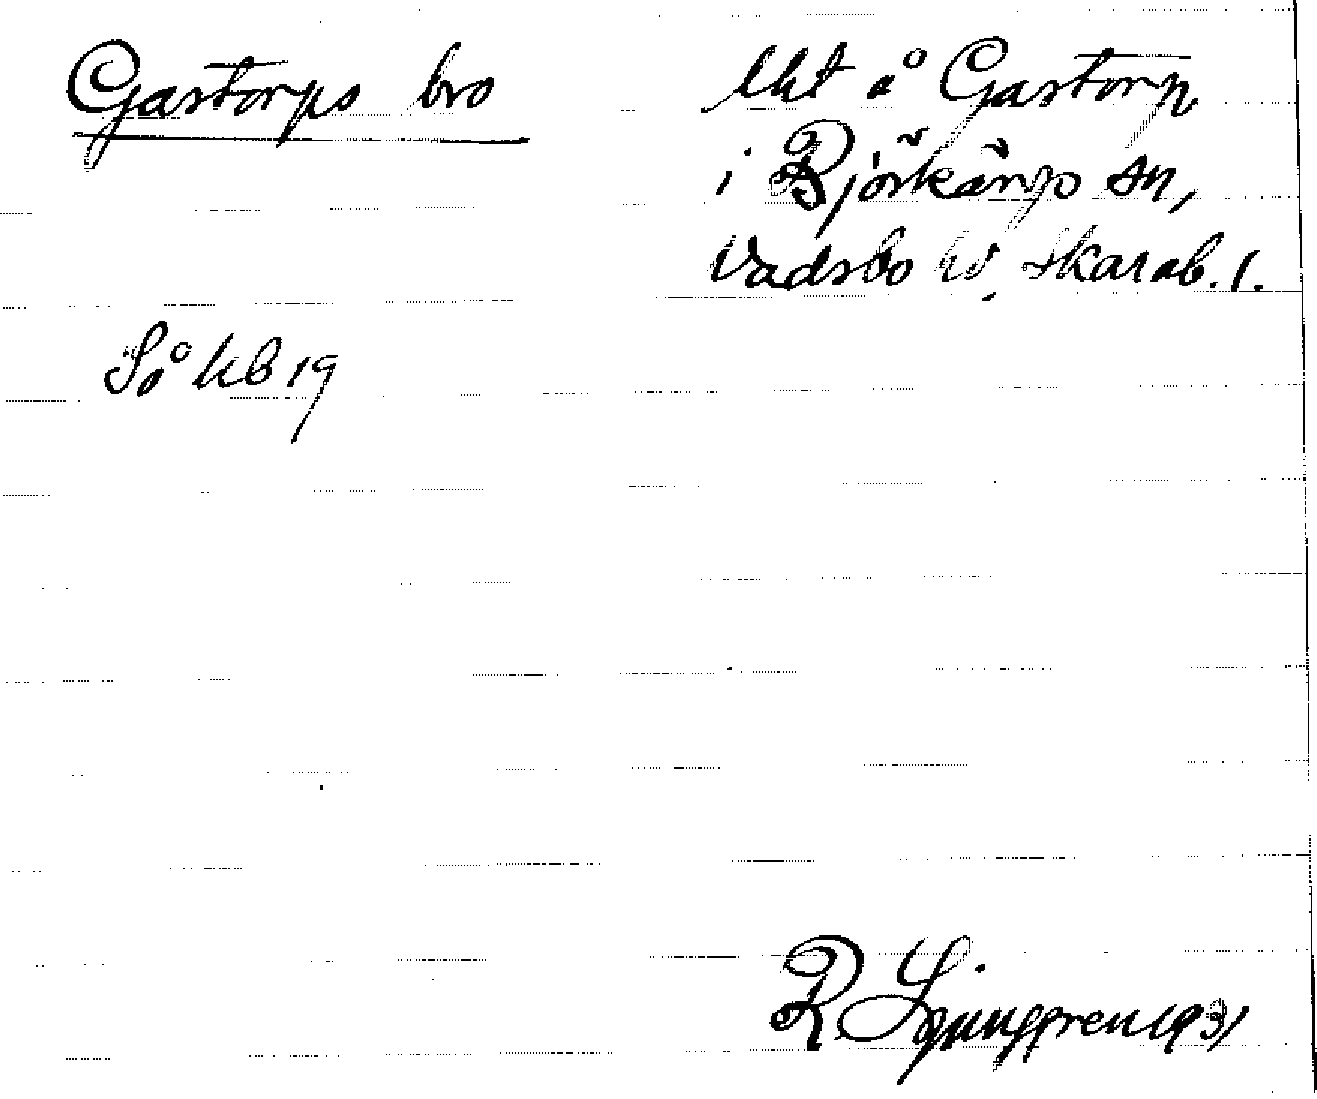 Gastorps bro
Ukt å Gastorp
i Björkängs sn,
Vadsbo hd, Skarab. l.
Så kb 19
R Ljunggren 1931